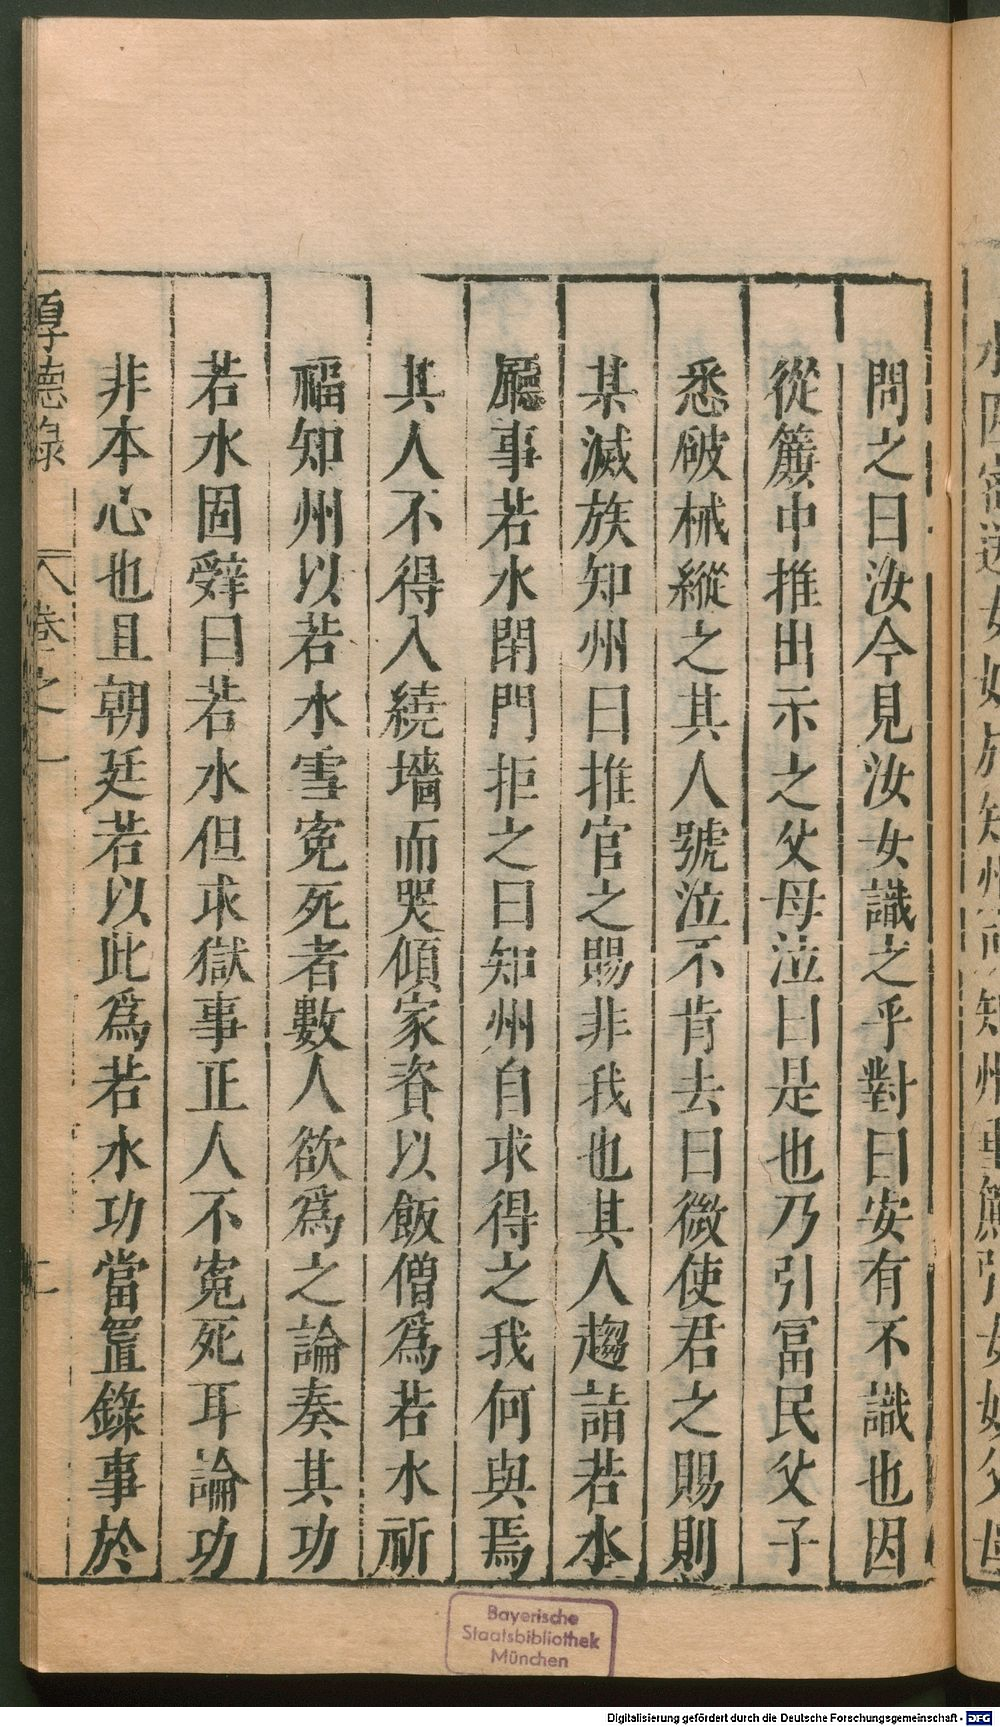 問之曰汝今見汝女識之乎對曰安有不識也因
從簾中推出示之父母泣曰是也乃引冨民父子
悉破械縱之其人號泣不肯去曰微使君之賜則
某滅族知州曰推官之賜非我也其人趨詣若水
廳事若水閉門拒之曰知州自求得之我何與焉
其人不得入繞墻而哭傾家資以飯僧爲若水祈
福知州以若水雪寃死者數人欲爲之論奏其功
若水固辭曰若水但求獄事正人不寃死耳論功
非本心也且朝廷若以此爲若水功當置錄事於
厚德錄 卷之一 二
Bayerische
Staatsbibliothek
München
Digitalisierung gefördert durch die Deutsche Forschungsgemeinschaft - DFG